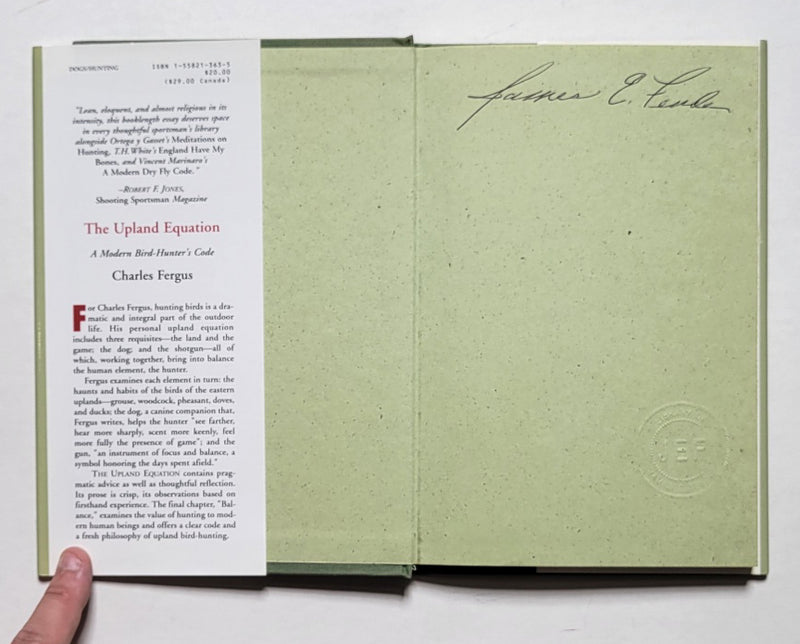 DOGS/HUNTING
ISBN 1-55821-363-5
$20.00
($29.00 Canada)
"Lean, eloquent, and almost religious in its
intensity, this booklength essay deserves space
in every thoughtful sportsman's library
alongside Ortega y Gasset's Meditations on
Hunting, T.H. White's England Have My
Bones, and Vincent Marinaro's
A Modern Dry Fly Code."
—ROBERT F. JONES,
Shooting Sportsman Magazine
The Upland Equation
A Modern Bird-Hunter's Code
Charles Fergus
For Charles Fergus, hunting birds is a dra-
matic and integral part of the outdoor
life. His personal upland equation
includes three requisites—the land and the
game; the dog; and the shotgun—all of
which, working together, bring into balance
the human element, the hunter.
Fergus examines each element in turn: the
haunts and habits of the birds of the eastern
uplands—grouse, woodcock, pheasant, doves,
and ducks; the dog, a canine companion that,
Fergus writes, helps the hunter "see farther,
hear more sharply, scent more keenly, feel
more fully the presence of game"; and the
gun, "an instrument of focus and balance, a
symbol honoring the days spent afield."
THE UPLAND EQUATION contains prag-
matic advice as well as thoughtful reflection.
Its prose is crisp, its observations based on
firsthand experience. The final chapter, "Bal-
ance," examines the value of hunting to mod-
ern human beings and offers a clear code and
a fresh philosophy of upland bird-hunting.
James E.
LIBRARY OF